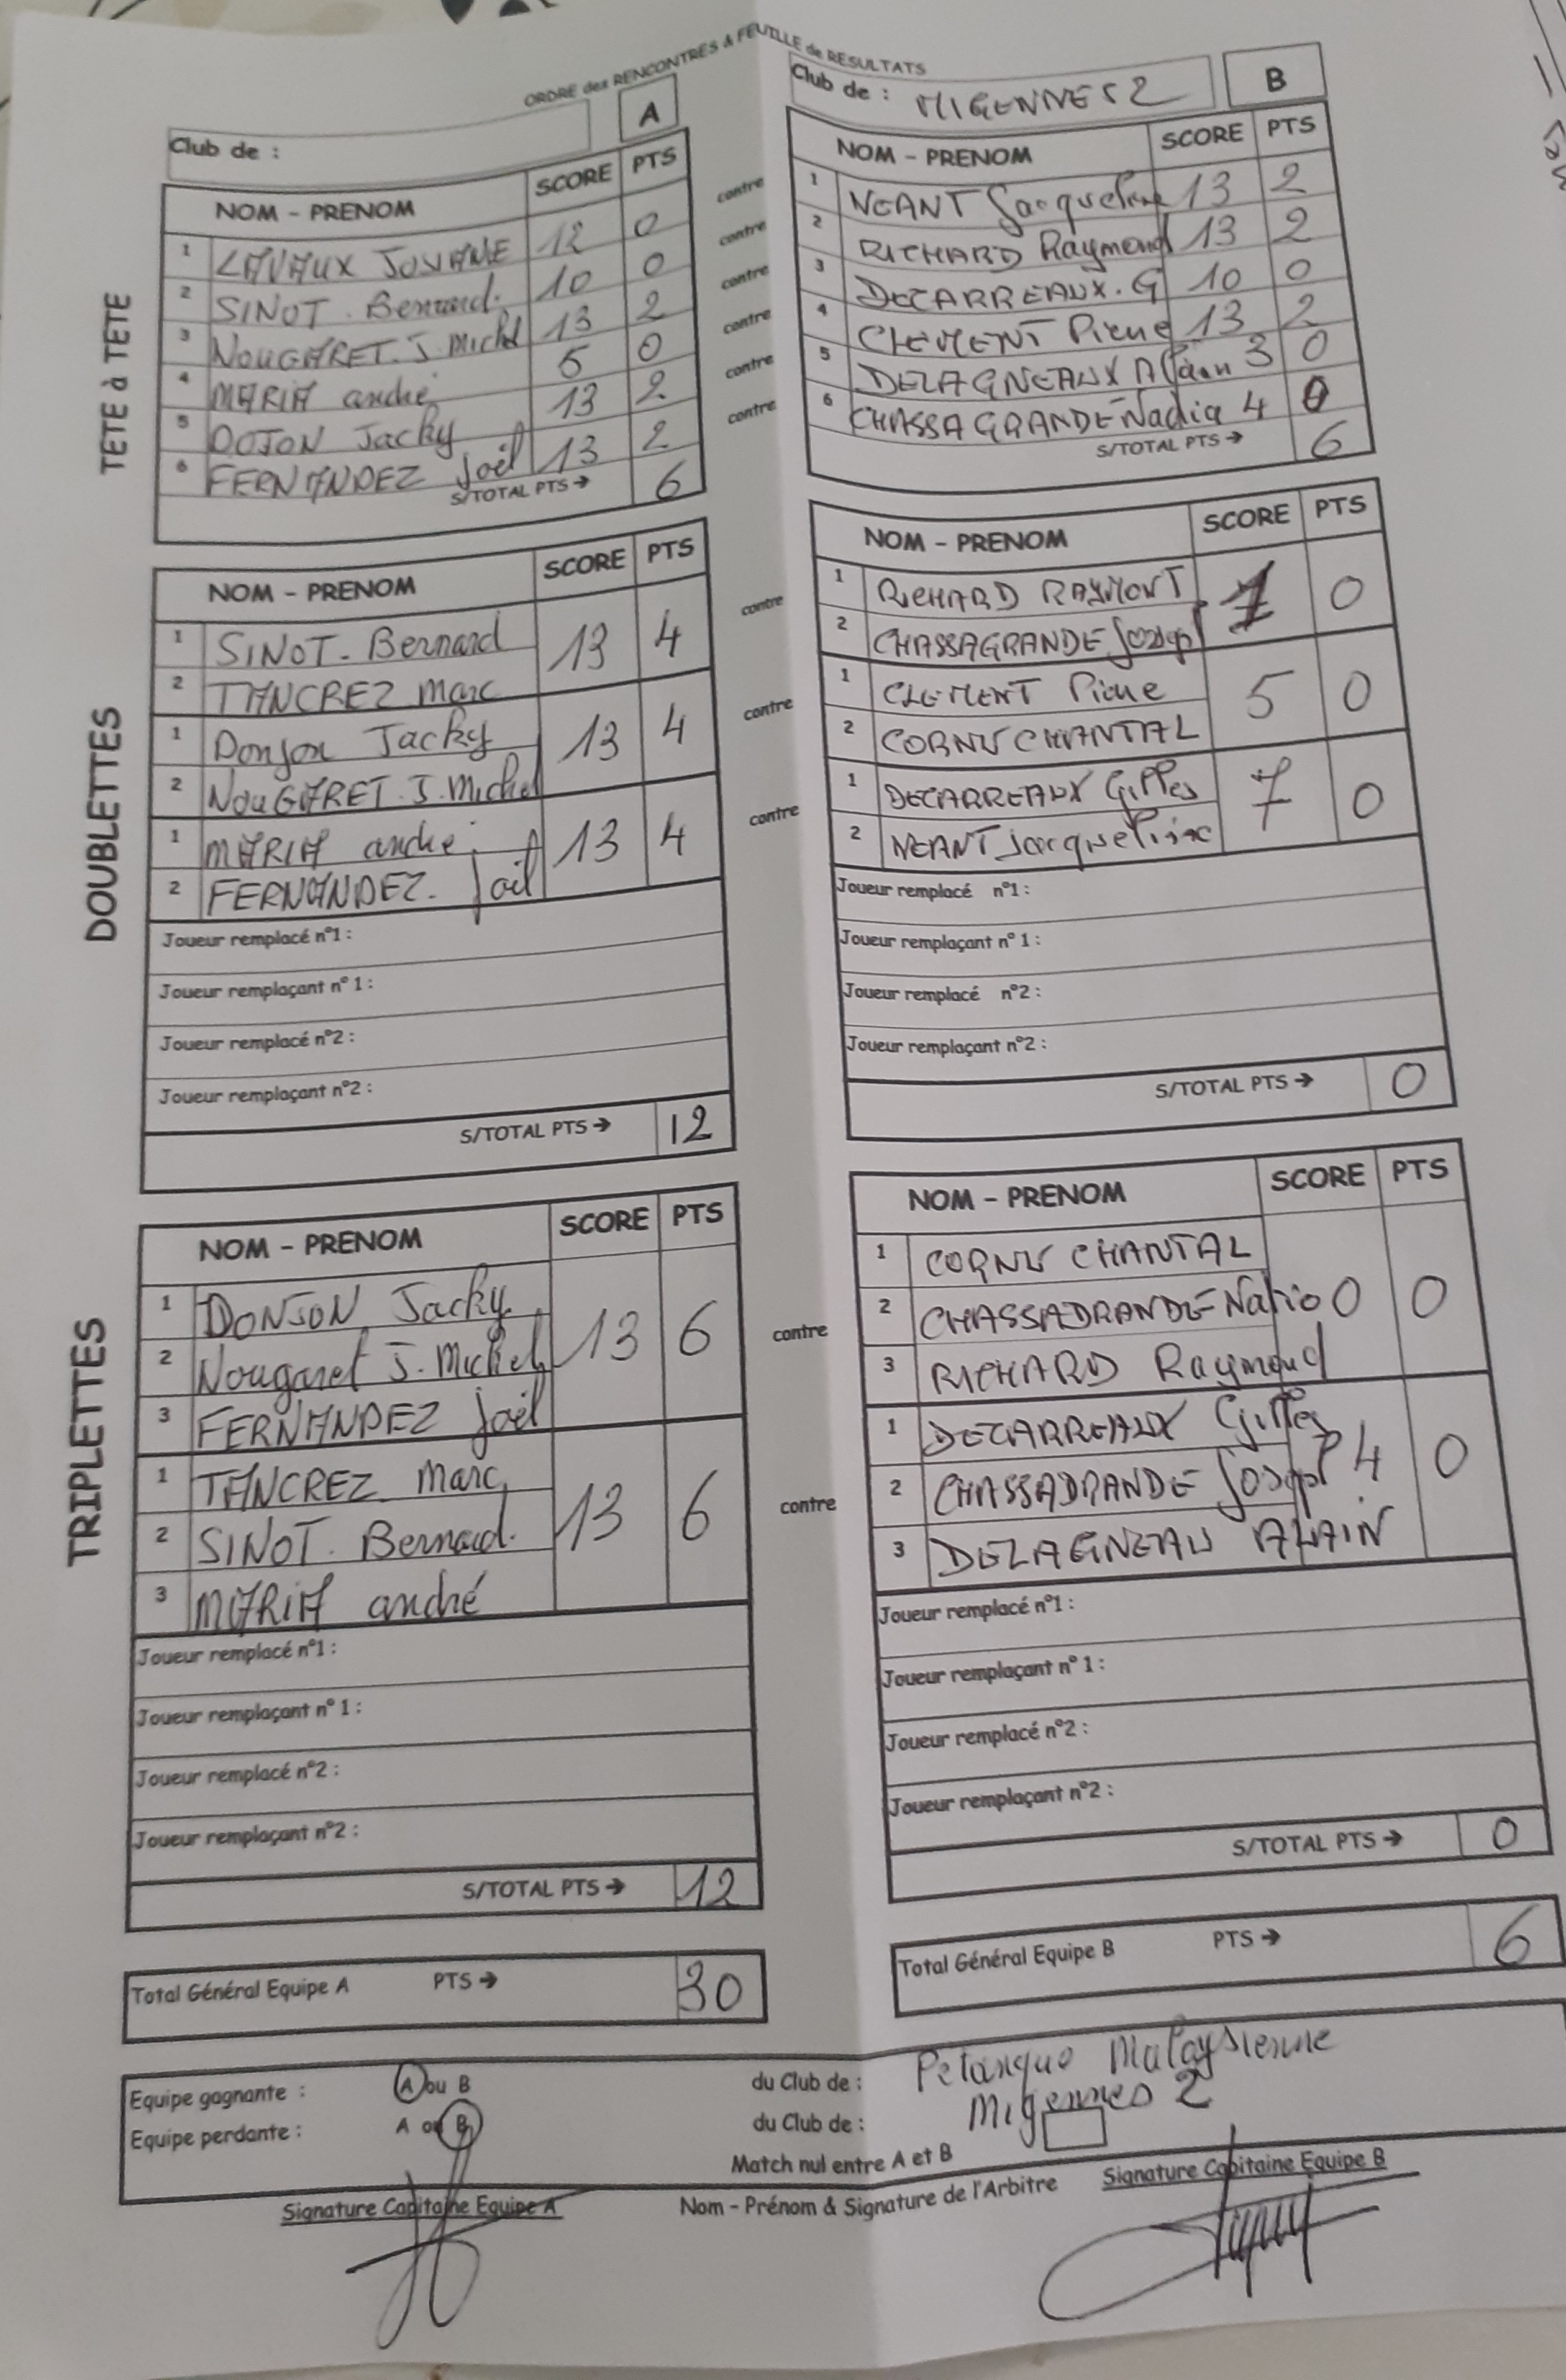 ORDRE des RENCONTRES & FEUILLE de RESULTATS
Club de :
A
NOM - PRENOM SCORE PTS
TETE à TETE
1 LAVAUX JOSIANE 12 0
2 SINOT. Bernard. 10 0
3 NOUGARET. J. Michel 13 2
4 MARIA andré 5 0
5 DOJON Jacky 13 2
6 FERNANDEZ Joël 13 2
S/TOTAL PTS → 6
contre
contre
contre
contre
contre
contre
Club de : MIGENNES 2
B
NOM - PRENOM SCORE PTS
1 NEANT Jacqueline 13 2
2 RICHARD Raymond 13 2
3 DECARREAUX. G 10 0
4 CLEMENT Pierre 13 2
5 DELAGNEAUX Alain 3 0
6 CHASSAGRANDE Nadia 4 0
S/TOTAL PTS → 6
DOUBLETTES
NOM - PRENOM SCORE PTS
1 SINOT. Bernard 13 4
2 TANCREZ Marc
1 Donjon Jacky 13 4
2 NOUGARET. J. Michel
1 MARIA andré. 13 4
2 FERNANDEZ. Joël
Joueur remplacé n°1 :
Joueur remplaçant n° 1 :
Joueur remplacé n°2 :
Joueur remplaçant n°2 :
S/TOTAL PTS → 12
contre
contre
contre
NOM - PRENOM SCORE PTS
1 RICHARD RAYMONT 0
2 CHASSAGRANDE Joseph
1 CLEMENT Pierre 5 0
2 CORNU CHANTAL
1 DECARREAUX Gilles 7 0
2 NEANT Jacqueline
Joueur remplacé n°1 :
Joueur remplaçant n° 1 :
Joueur remplacé n°2 :
Joueur remplaçant n°2 :
S/TOTAL PTS → 0
TRIPLETTES
NOM - PRENOM SCORE PTS
1 DONJON Jacky 13 6
2 Nougaret J. Michel
3 FERNANDEZ Joël
1 TANCREZ Marc 13 6
2 SINOT. Bernard.
3 MARIA andré
Joueur remplacé n°1 :
Joueur remplaçant n° 1 :
Joueur remplacé n°2 :
Joueur remplaçant n°2 :
S/TOTAL PTS → 12
contre
contre
NOM - PRENOM SCORE PTS
1 CORNU CHANTAL 0 0
2 CHASSADRANDE
3 RICHARD Raymond
1 DECARREAUX Gilles 4 0
2 CHASSADRANDE Joseph
3 DELAGNEAU ALAIN
Joueur remplacé n°1 :
Joueur remplaçant n° 1 :
Joueur remplacé n°2 :
Joueur remplaçant n°2 :
S/TOTAL PTS → 0
Total Général Equipe A PTS → 30
Total Général Equipe B PTS → 6
Equipe gagnante : A ou B du Club de : Petanque Malaysienne
Equipe perdante : A ou B du Club de : Migennes 2
Match nul entre A et B
Signature Capitaine Equipe A
Nom - Prénom & Signature de l'Arbitre
Signature Capitaine Equipe B